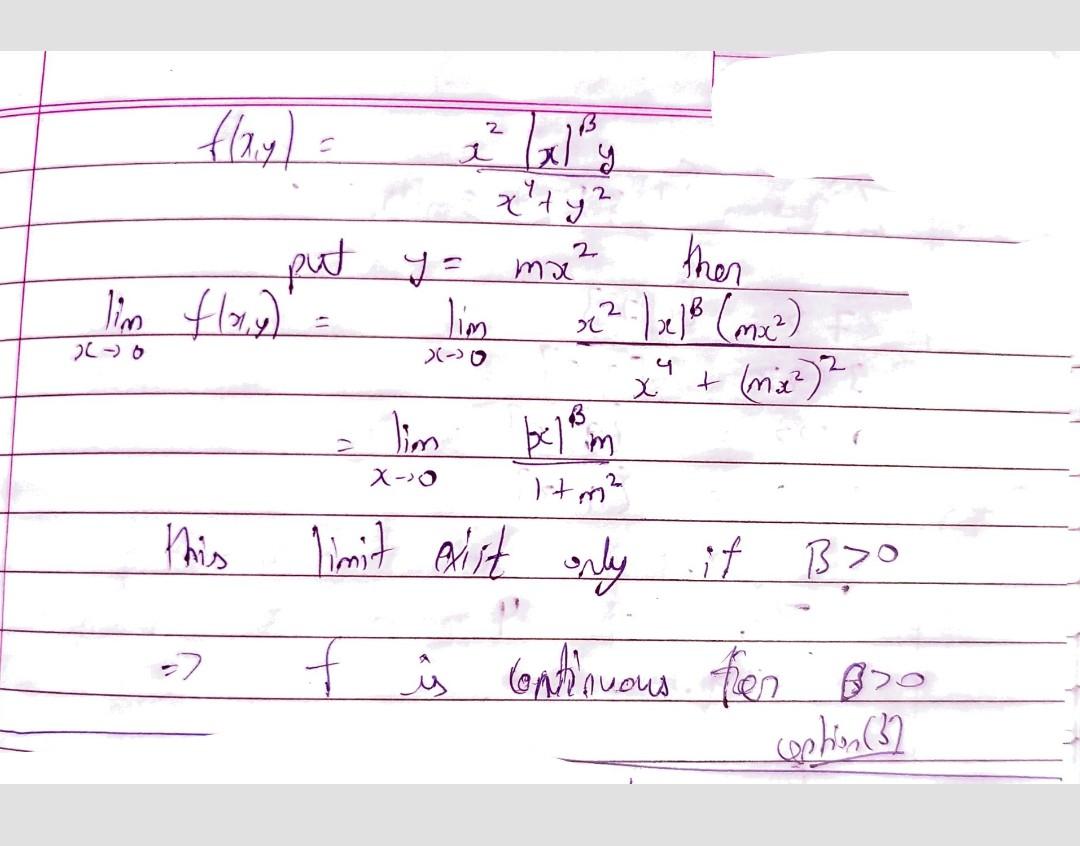 f(x,y) = x² |x|^β y / x⁴ + y²
put y = mx² then
lim x→0 f(x,y) = lim x→0 x² |x|^β (mx²) / x⁴ + (mx²)²
= lim x→0 |x|^β m / 1+m²
this limit exist only if β>0
=> f is continuous then β>0
option(3)